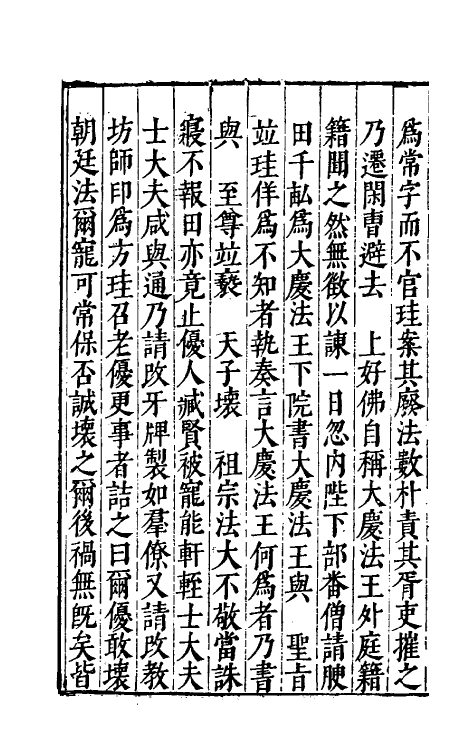 爲常字而不官珪案其廢法數朴責其胥吏摧之
乃遷閑曹避去　上好佛自稱大慶法王外庭籍
籍聞之然無徵以諫一日忽內陛下部畨僧請腴
田千畝爲大慶法王下院書大慶法王與　聖旨
竝珪佯爲不知者執奏言大慶法王何爲者乃書
與　至尊竝褻　天子壞　祖宗法大不敬當誅
寢不報田亦竟止優人臧賢被寵能軒輊士大夫
士大夫咸與通乃請改牙牌製如羣僚又請改教
坊師印爲方珪召老優更事者詰之曰爾優敢壞
朝廷法爾寵可常保否誠壞之爾後禍無旣矣皆